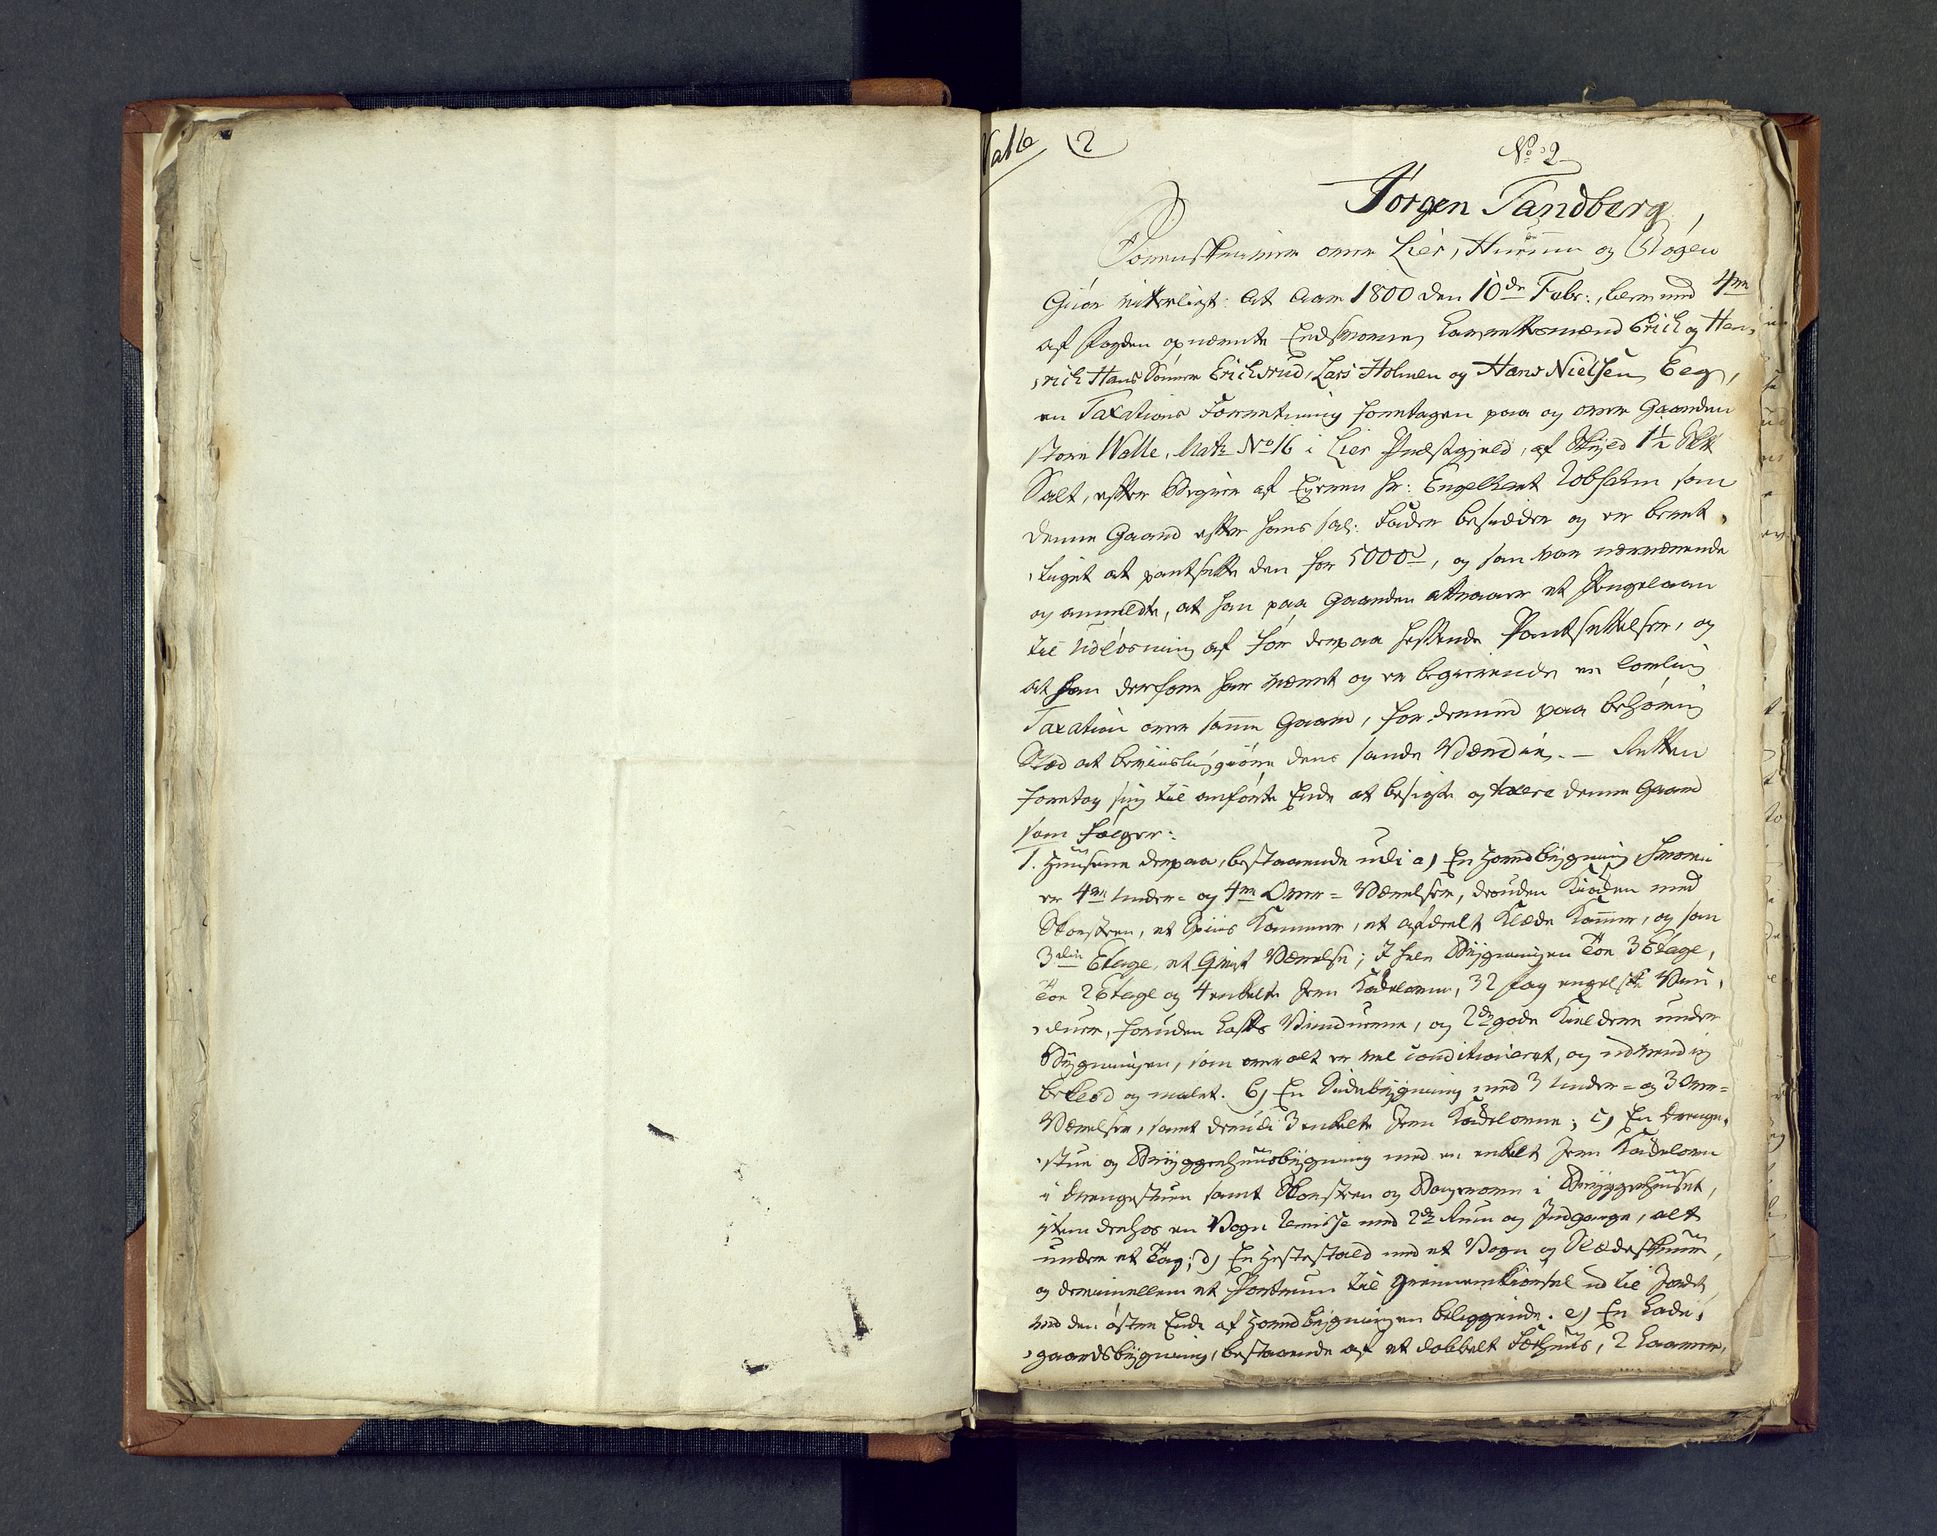 Valle 2
No 2
Jørgen Tandberg,
Sorenskriver over Lier, Hurum og Røgen
Giør vitterligt: At Aar 1800 den 10de Febr:, blev med 4re
af Fogden opnævnte Eedsvorne Laugrettesmænd Erich og Hen-
rich Hans Sønner Erichsrud, Lars Holmen og Hans Nielsen Eeg,
en Taxations Forretning foretagen paa og over Gaarden
store Walle, Matr No 16 i Lier Præstegield, af Skyld 1½ Skt
Salt, efter Begiær af Eyeren Hr: Engelbret Robsahm som
denne Gaard efter hans sal: Fader besidder og er beret-
tiget at pantsette den for 5000rd, og som var nærværende
og anmeldte, at han paa Gaarden attraaer et Pengelaan
til Udløsning af før derpaa heftende Pantsettelser, og
at han derfore har været og er begiærende en lovlig
Taxation over samme Gaard, for dermed paa behørig
Stæd at beviisliggiøre dens sande Værdie. — Retten
foretog sig til anførte Ende at besigte og taxere denne Gaard
som følger:
1. Huusene derpaa, bestaaende udi a) En Hovedbygning hvori
er 4re Under- og 4re Over-Værelser, desuden Kiøken med
Skorsteen, et Spiis Kammer, et afdeelt Klæde Kammer, og som
3die Etage, et Qvist Værelse; I hele Bygningen Toe 3 Etage,
Toe 2 Etage og 4 enkelte Jern Kakelovne, 32 Fag engelske Vin-
duer, foruden Lofts Vinduerne, og 2de gode Kieldere under
Bygningen, som overalt er vel conditioneret, og udvendig
beklæd og malet. b) En Sidebygning med 3 Under- og 3 Over-
Værelser, samt derudi 3 enkelte Jern Kakelovne; c) En Drenge-
stue og Bryggerhuusbygning med en enkelt Jern Kakelovn
i Drengestuen samt Skorsteen og Bagerovn i Bryggerhuuset,
item derhos en Vogn Remisse med 2de Rum og Indgange, alt
under et Tag; d) En Hestestald med et Vogn og Slædeskuur,
og derimellem et Portrum til Giennemkiørsel ud til Jordet,
ved den østre Ende af Hovedbygningen beliggende. e) En Lade-
gaardsbygning, bestaaende af et dobbelt Fæehuus, 2 Laaver,